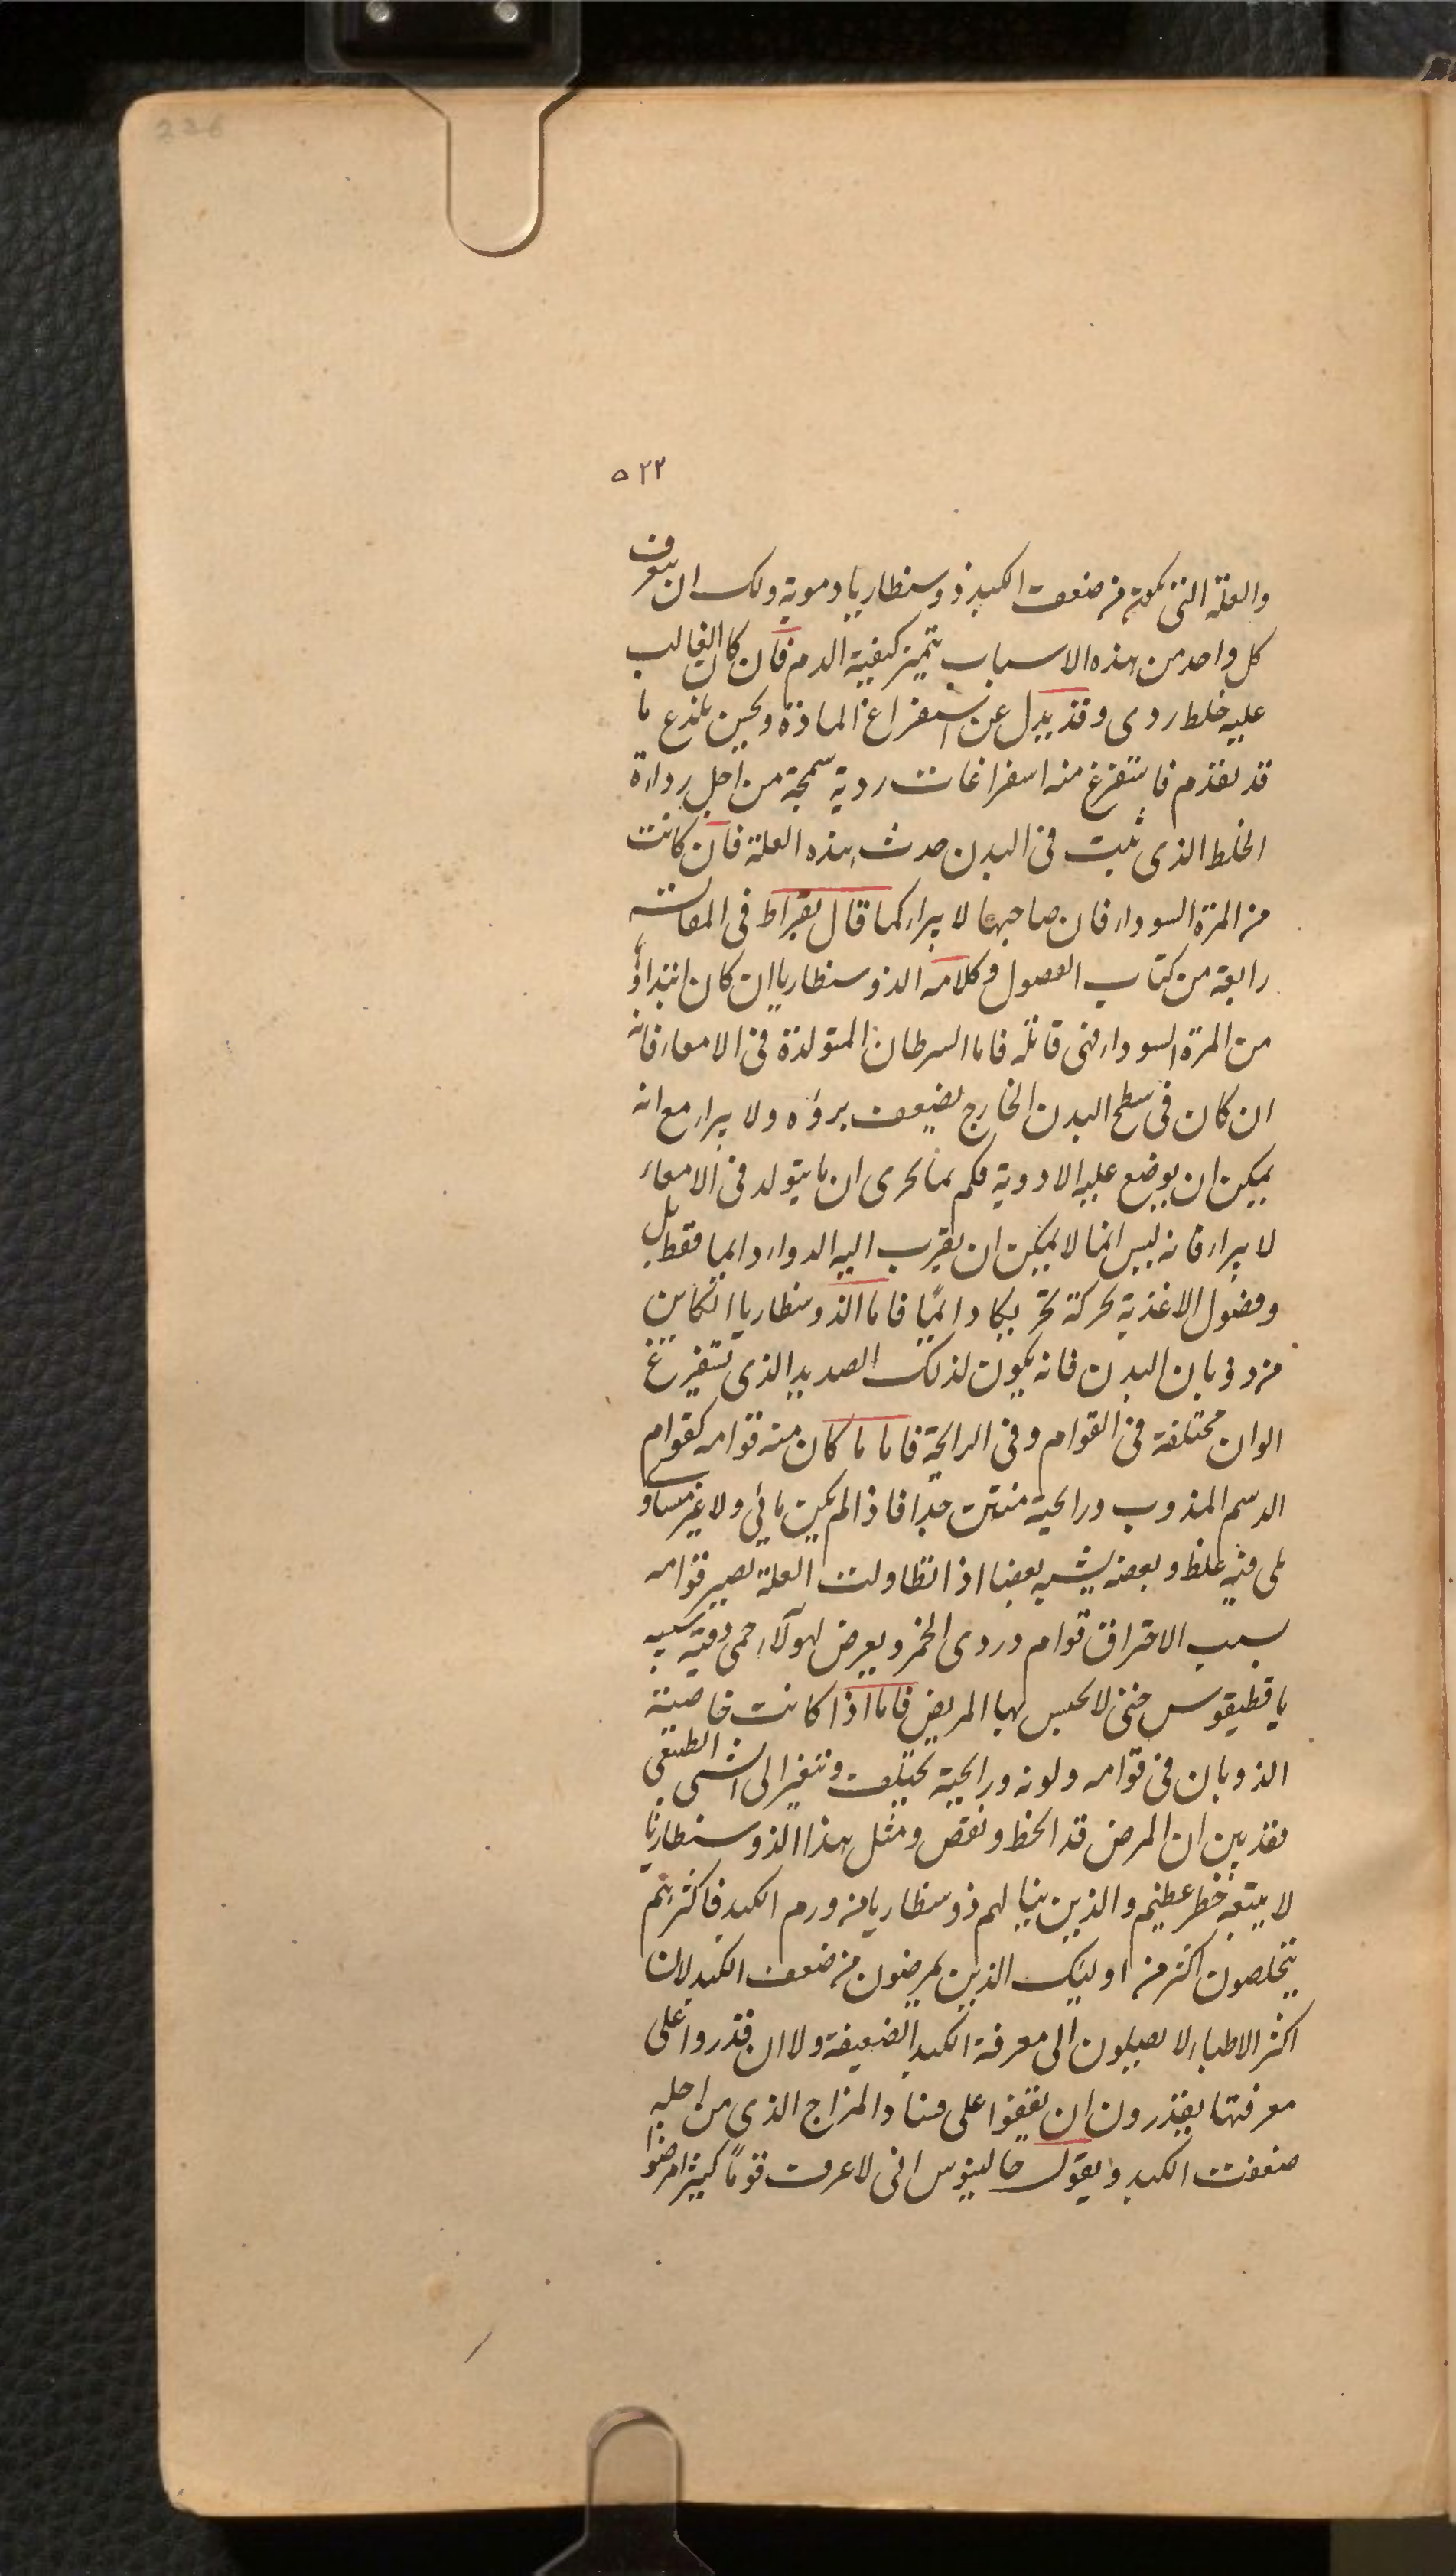 226
۵۲۲
والعلة التى تكون من ضعف الكبد ذوسنطاريا دموية ولك ان تعرف
كل واحد من هذه الاسباب بتميز كيفية الدم فان كان الغالب
عليه خلط ردى وقد يدل عن استفراغ المادة وحين يلذع ما
قد تقدم فاستفرغ منه استفراغات ردية سمجة من اجل رداءة
الخلط الذى ثبت فى البدن حدث هذه العلة فان كانت
من المرة السوداء فان صاحبها لا يبراء كما قال بقراط فى المقالة
رابعة من كتاب الفصول وكلامه الذوسنطاريا ان كان ابتداؤ
من المرة السوداء فهى قاتله فاما السرطان المتولدة فى الامعاء فانه
ان كان فى سطح البدن الخارج يضيعف برؤه ولا يبراء مع انه
يمكن ان يوضع عليه الادوية فكم بما لحرى ان ما يتولد فى الامعاء
لا يبراء فانه ليس انما لا يمكن ان يقرب اليه الدواء دايما فقط بل
وفضول الاغذية بحركة تحر بكا دايمًا فاما الذوسنطاريا الكاين
من ذوبان البدن فانه يكون لذلك الصديد الذى تستفرغ
الوان مختلفة فى القوام وفى الرايحة فاما ما كان منه قوامه كقوام
الدسم المذوب ورايحة منتن جدا فاذا لم يكن مائى ولا غير مساو
بلى فيه غلظ وبعضه يشبه بعضا اذا تطاولت العلة يصير قوامه
بسبب الاحتراق قوام دردى الخمر ويعرض لهولاء حمى دقية شبيه
باقطيقوس حتى لا يحس بها المريض فاما اذا كانت خاصية
الذوبان فى قوامه ولونه ورايحة تختلف وتتغير الى الشى الطبيعى
فقد بين ان المرض قد انحط ونقص ومثل هذا الذوسنطاريا
لا يتبعه خطر عظيم والذين ينالهم ذوسنطاريا من ورم الكبد فاكثرهم
يتخلصون اكثر من اوليك الذين يمرضون من ضعف الكبد لان
اكثر الاطباء لا يصلون الى معرفة الكبد الضعيفة ولا ان قدروا على
معرفتها يقدرون ان يقفوا على فساد المزاج الذى من اجله
ضعفت الكبد ويقول جالينوس انى لاعرف قومًا كثيرا مرضوا